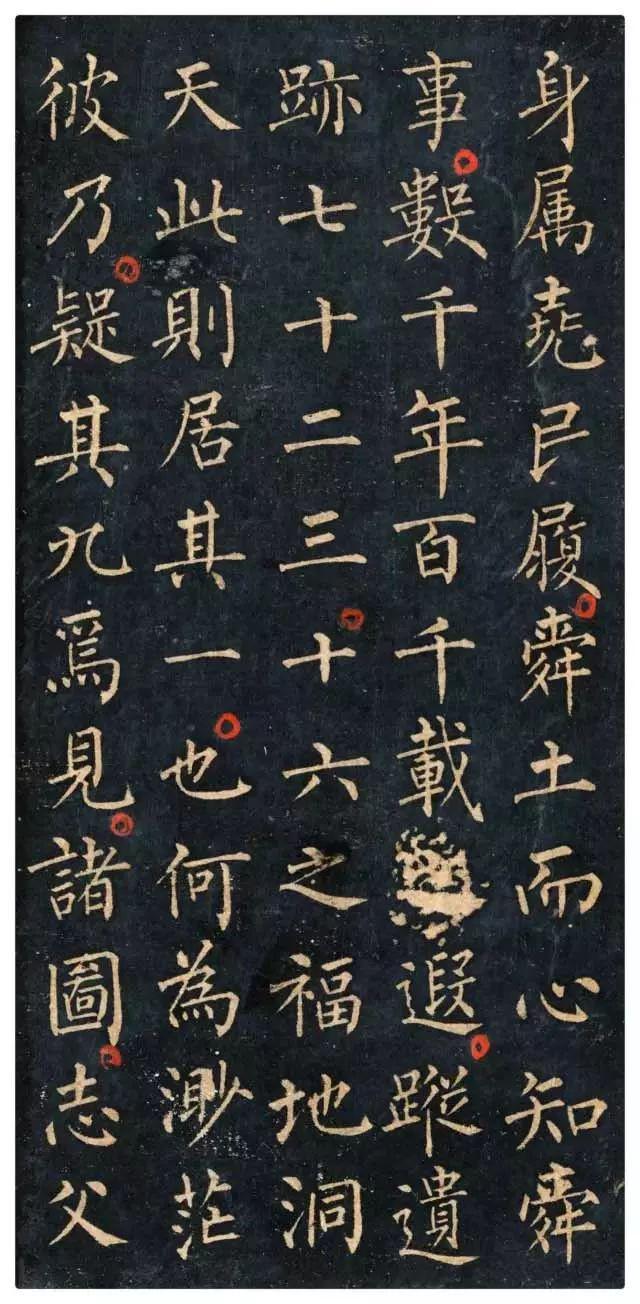 身属堯民履舜土而心知舜
事數千年百千載遐蹤遺
跡七十二三十六之福地洞
天此則居其一也何為渺茫
彼乃疑其九爲見諸圖志父